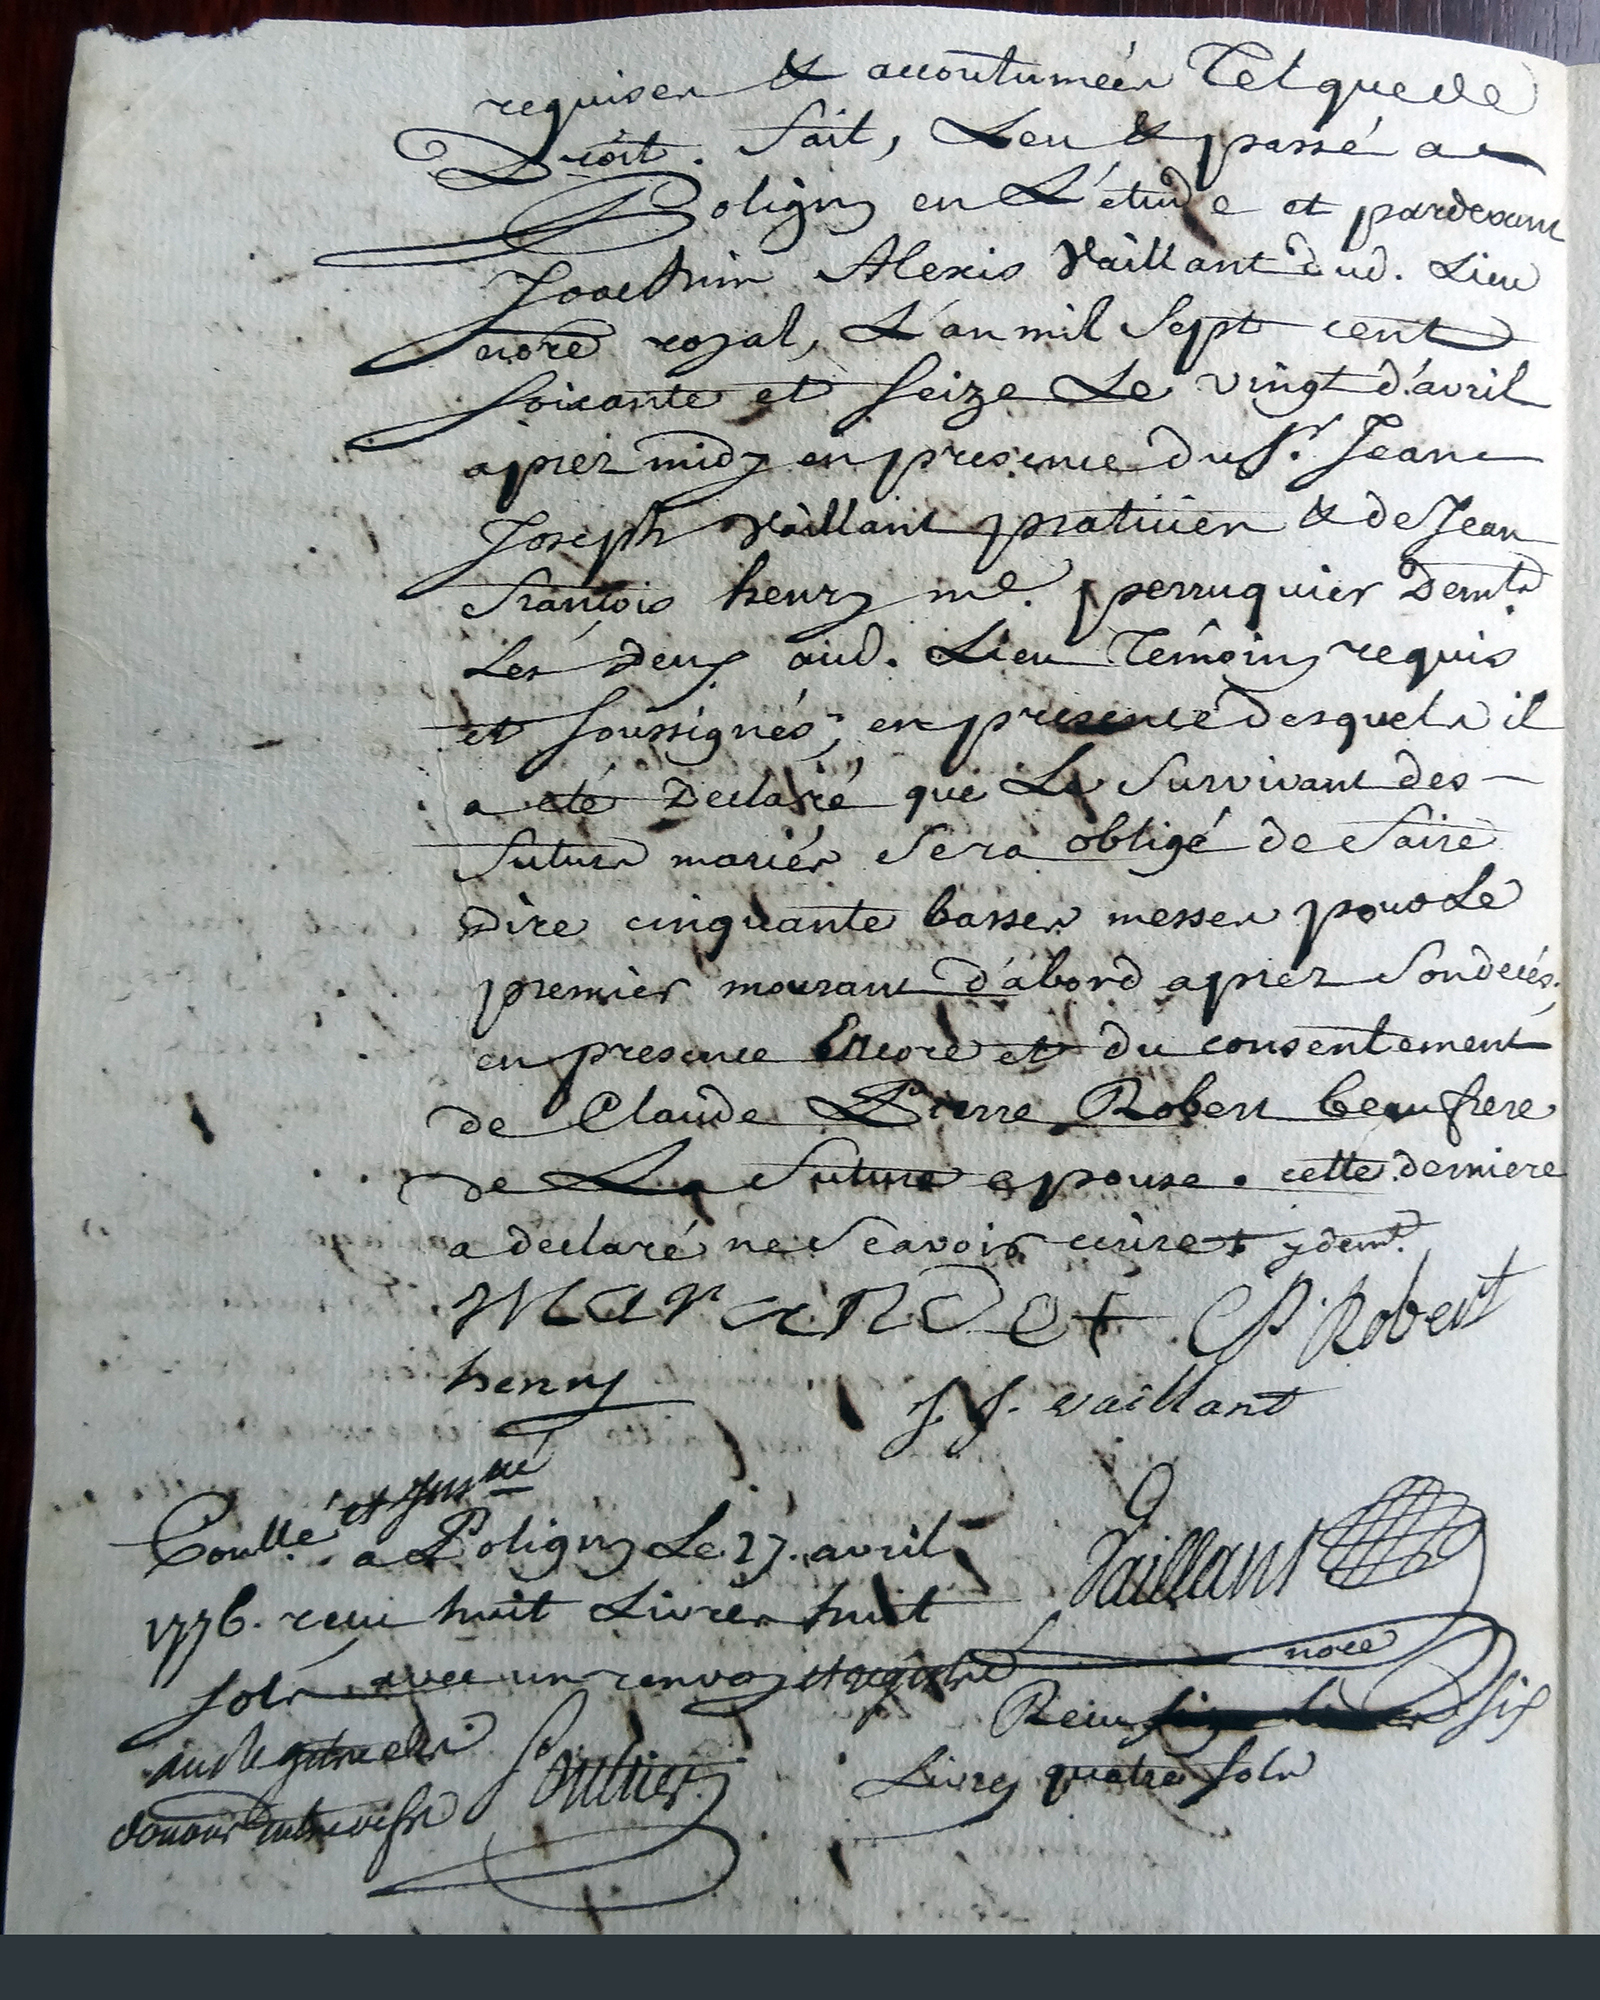 requises & accoutumées Telquede
Droit. fait, Leu & passé a
Poligny en L'étude et pardevant
Joachim Alexis Vaillant dud. Lieu
nore royal, L'an mil sept cent
soixante et seize Le vingt d'avril
aprez midy en presence du Sr. Jean
Joseph Vaillant praticien & de Jean
françois henry md. perruquier Demts
Les deux aud. Lieu Témoins requis
et soussignés; en presence desquels il
a eté Declaré que Le Survivant des
futurs mariés Sera obligé de faire
Dire cinquante basses messes pour Le
premier mourant d'abord aprez Son decés;
en presence Encore et du consentement
de Claude Pierre Robert beaufrere
de La future epouse. cette derniere
a declaré ne Scavoir ecrire
Marandet CP. Robert
henry J J. vaillant
Conllé et
a Poligny Le 27. avril
1776. receu huit Livres huit
sols avec un renvoy Vaillant
nore
Receu six
Livres quatre sols